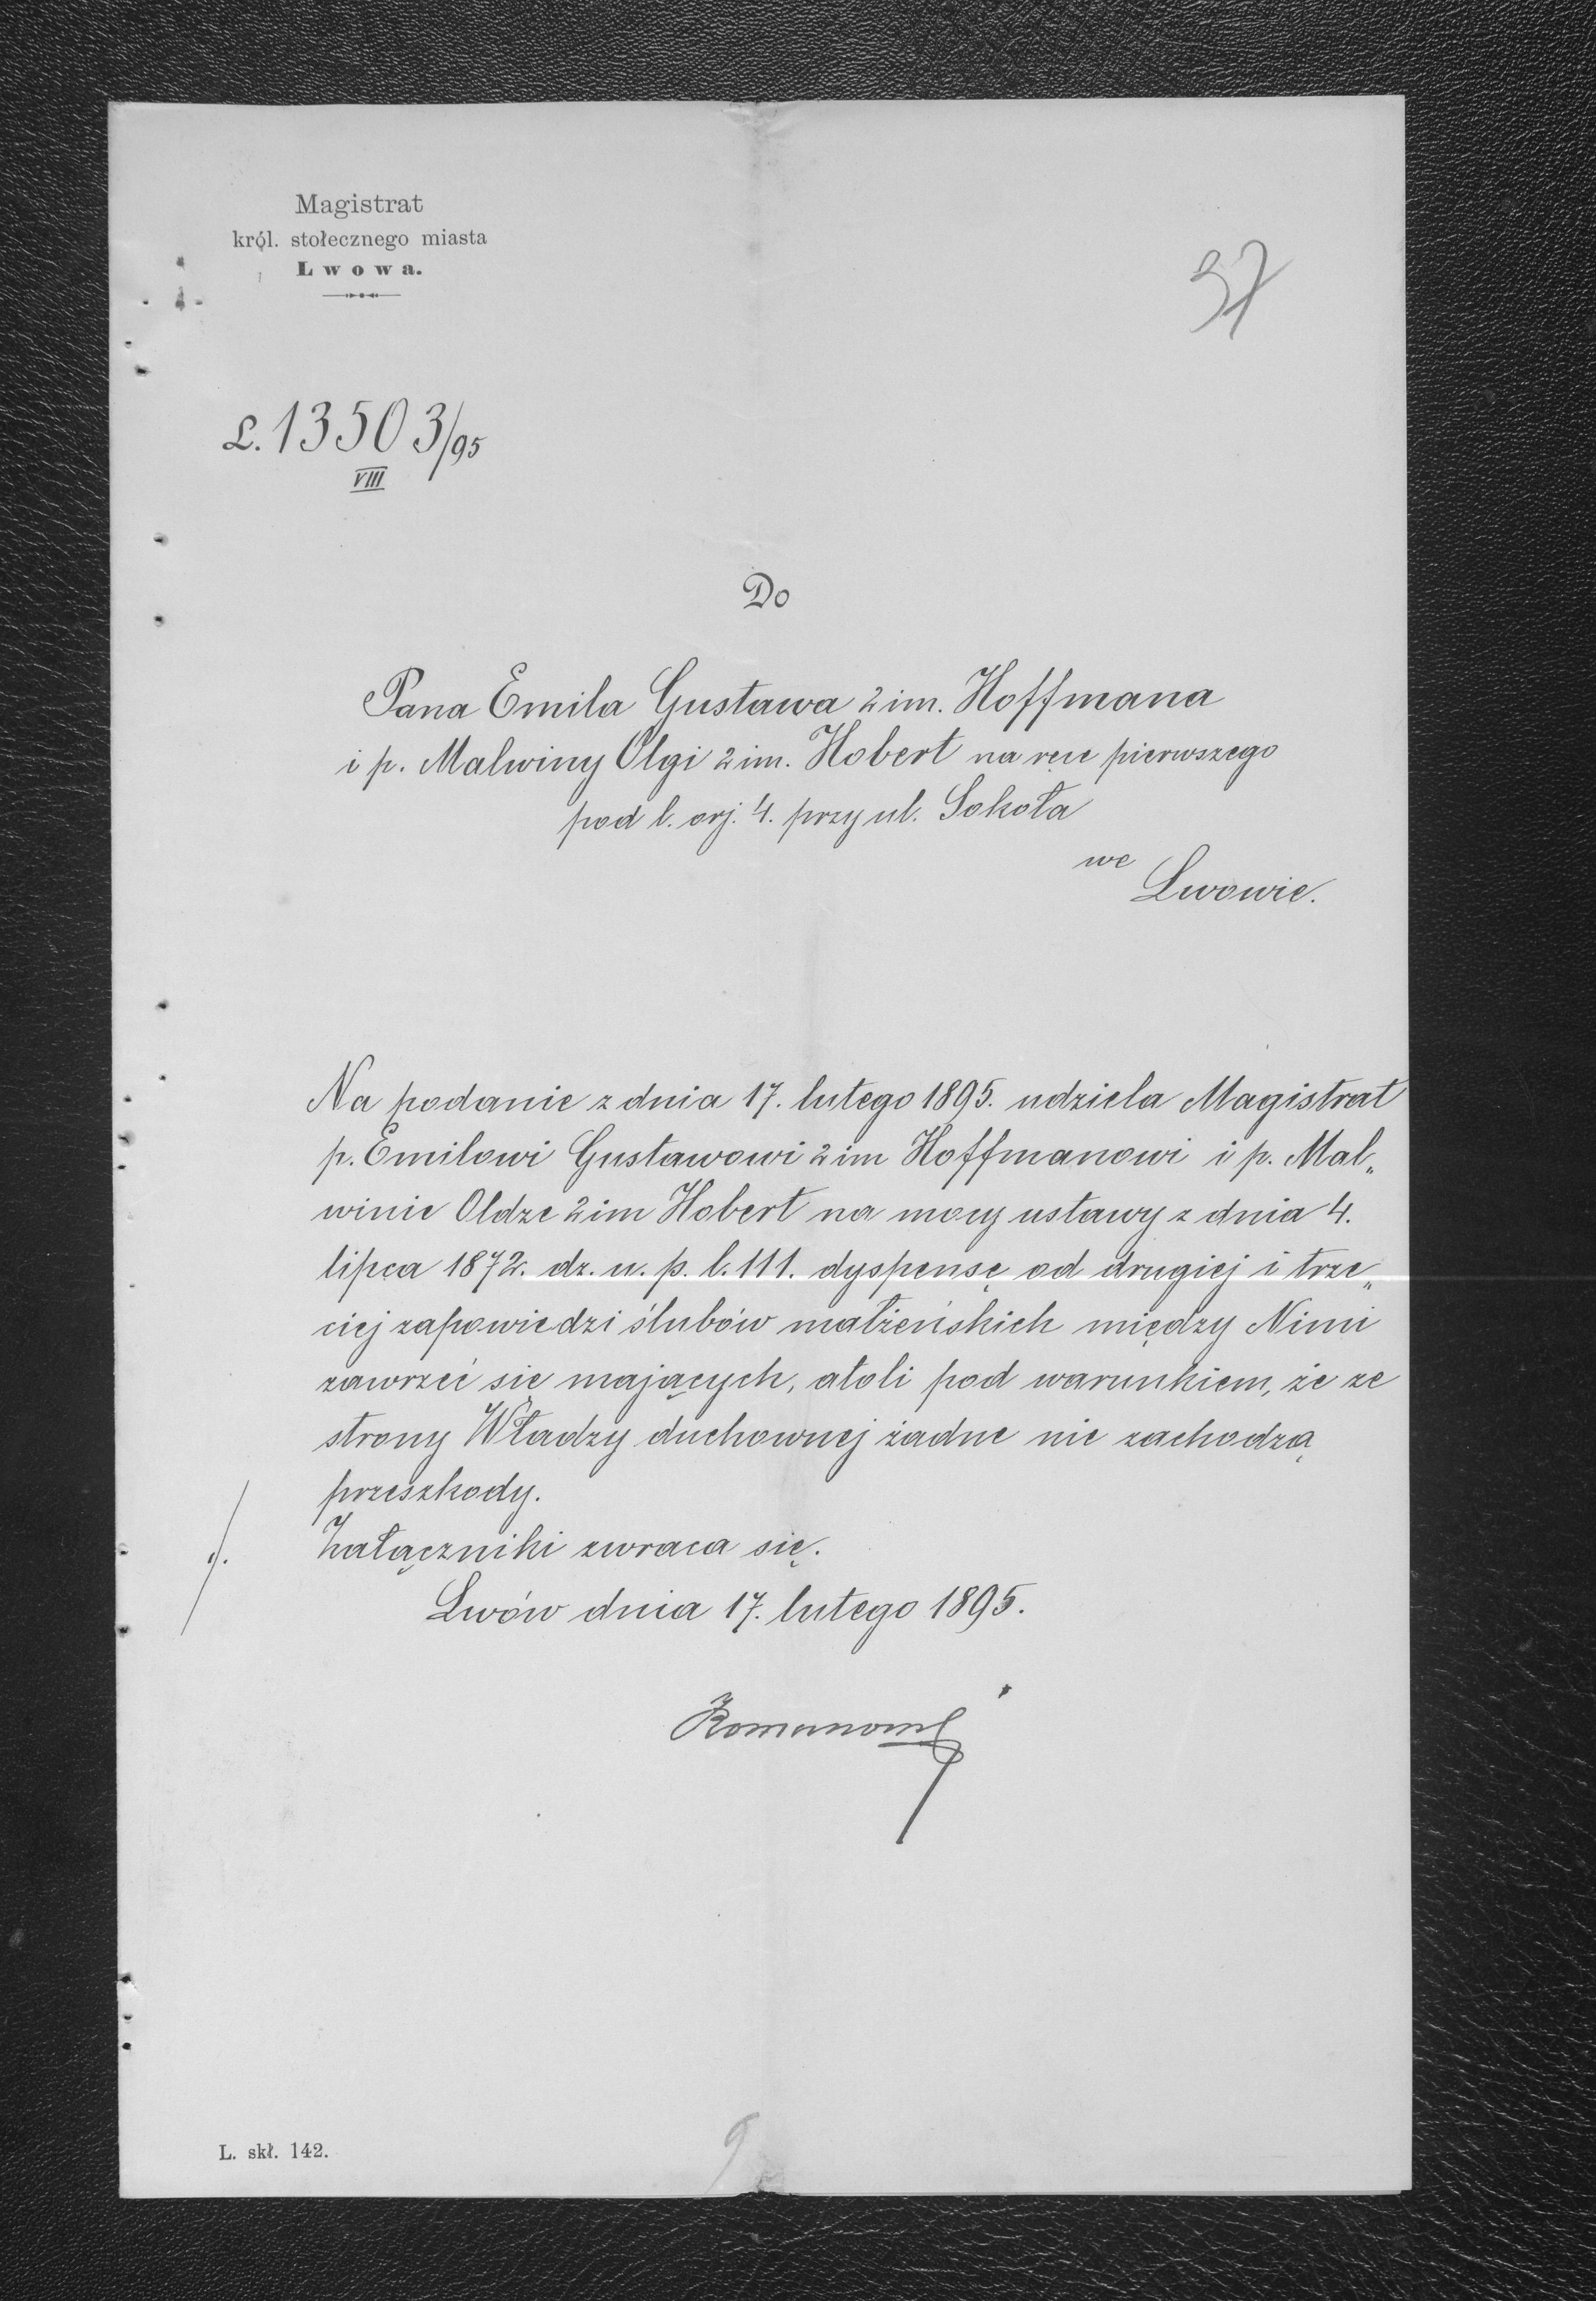 Magistrat
król. stołecznego miasta
Lwowa.
37
L. 13503/95
VIII
Do
Pana Emila Gustawa 2 im. Hoffmana
i p. Malwiny Olgi 2 im. Hobert na ręce pierwszego
pod l. orj. 4. przy ul. Sokoła
we
Lwowie.
Na podanie z dnia 17. lutego 1895. udziela Magistrat
p. Emilowi Gustawowi 2 im Hoffmanowi i p. Mal„
winie Oldze 2 im Hobert na mocy ustawy z dnia 4.
lipca 1872. dz. u. p. l. 111. dyspensę od drugiej i trze„
ciej zapowiedzi ślubów małżeńskich między Nimi
zawrzeć się mających, atoli pod warunkiem, że ze
strony Władzy duchownej żadne nie zachodzą
przeszkody.
./. Załączniki zwraca się.
Lwów dnia 17. lutego 1895.
9
L. skł. 142.